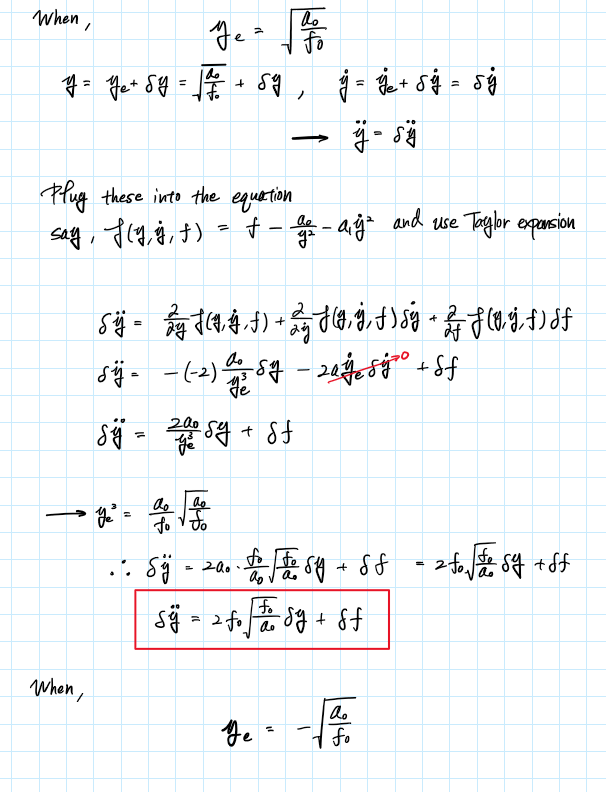 When,
y_e = √(a₀/f₀)
y = y_e + δy = √(a₀/f₀) + δy , ẏ = ẏ_e + δẏ = δẏ
⟶ ÿ = δÿ
Plug these into the equation
say, f(y, ẏ, f) = f - a₀/y² - a₁ẏ² and use Taylor expansion
δÿ = ∂/∂y f(y, ẏ, f) + ∂/∂ẏ f(y, ẏ, f) δẏ + ∂/∂f f(y, ẏ, f) δf
δÿ = -(-2) a₀/y_e³ δy - 2aẏ_e δẏ → 0 + δf
δÿ = 2a₀/y_e³ δy + δf
⟶ y_e³ = a₀/f₀ √(a₀/f₀)
∴ δÿ = 2a₀ · f₀/a₀ √(f₀/a₀) δy + δf = 2f₀ √(f₀/a₀) δy + δf
δÿ = 2f₀ √(f₀/a₀) δy + δf
When,
y_e = -√(a₀/f₀)